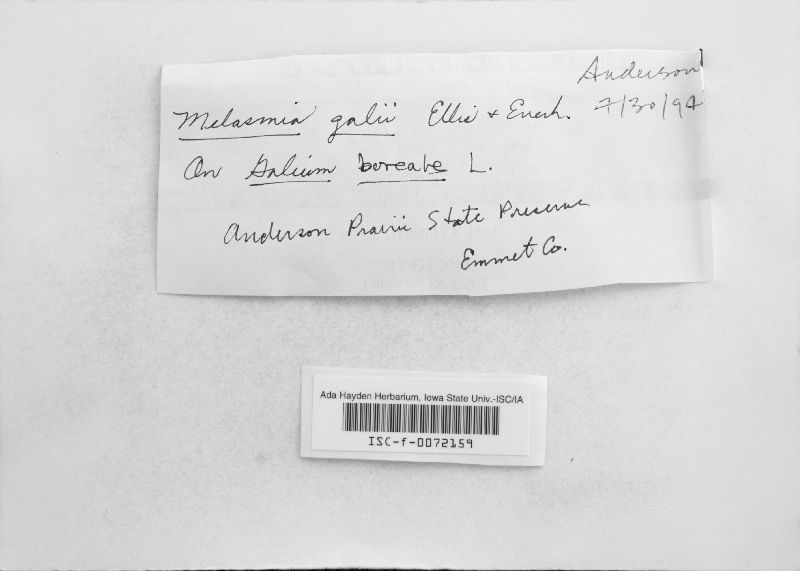 Anderson
Melasmia galii Ellis & Everh. 7/30/94
On Galium boreale L.
Anderson Prairie State Preserve
Emmet Co.
Ada Hayden Herbarium, Iowa State Univ.-ISC/IA
ISC-f-0072159